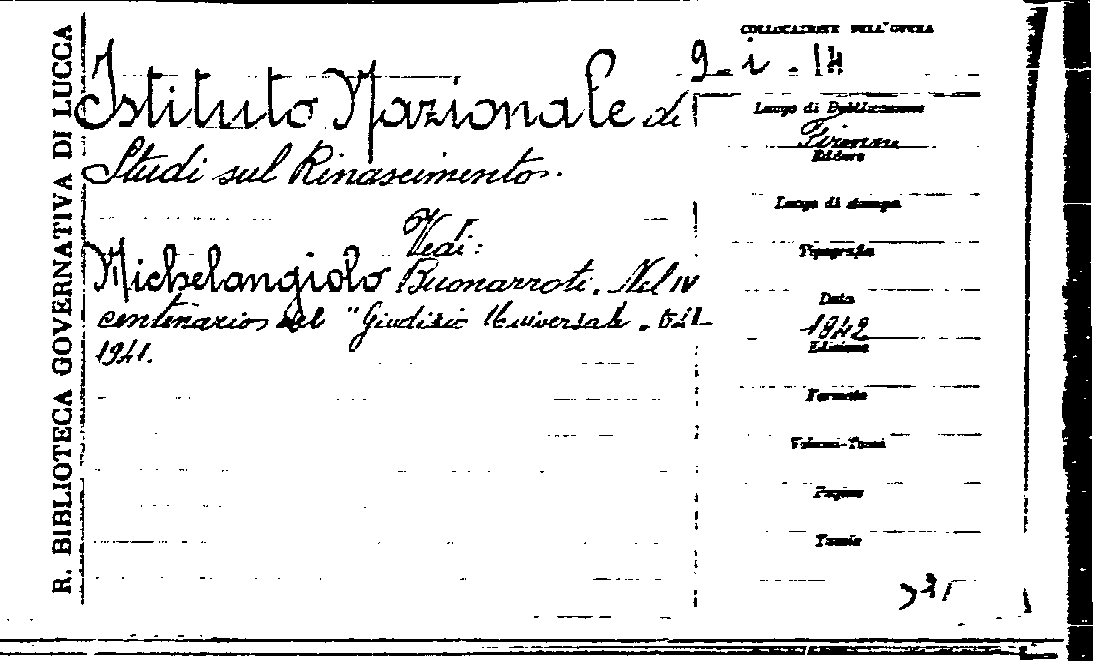 R. BIBLIOTECA GOVERNATIVA DI LUCCA
COLLOCAZIONE DELL'OPERA
9. i. 14
Istituto Nazionale di
Studi sul Rinascimento.
Vedi:
Michelangiolo Buonarroti. Nel IV
centenario del "Giudizio Universale.
1941.
Luogo di Pubblicazione
Firenze
Editore
Luogo di stampa
Tipografia
Data
1942
Edizione
Formato
Volumi-Tomi
Pagine
Tavole